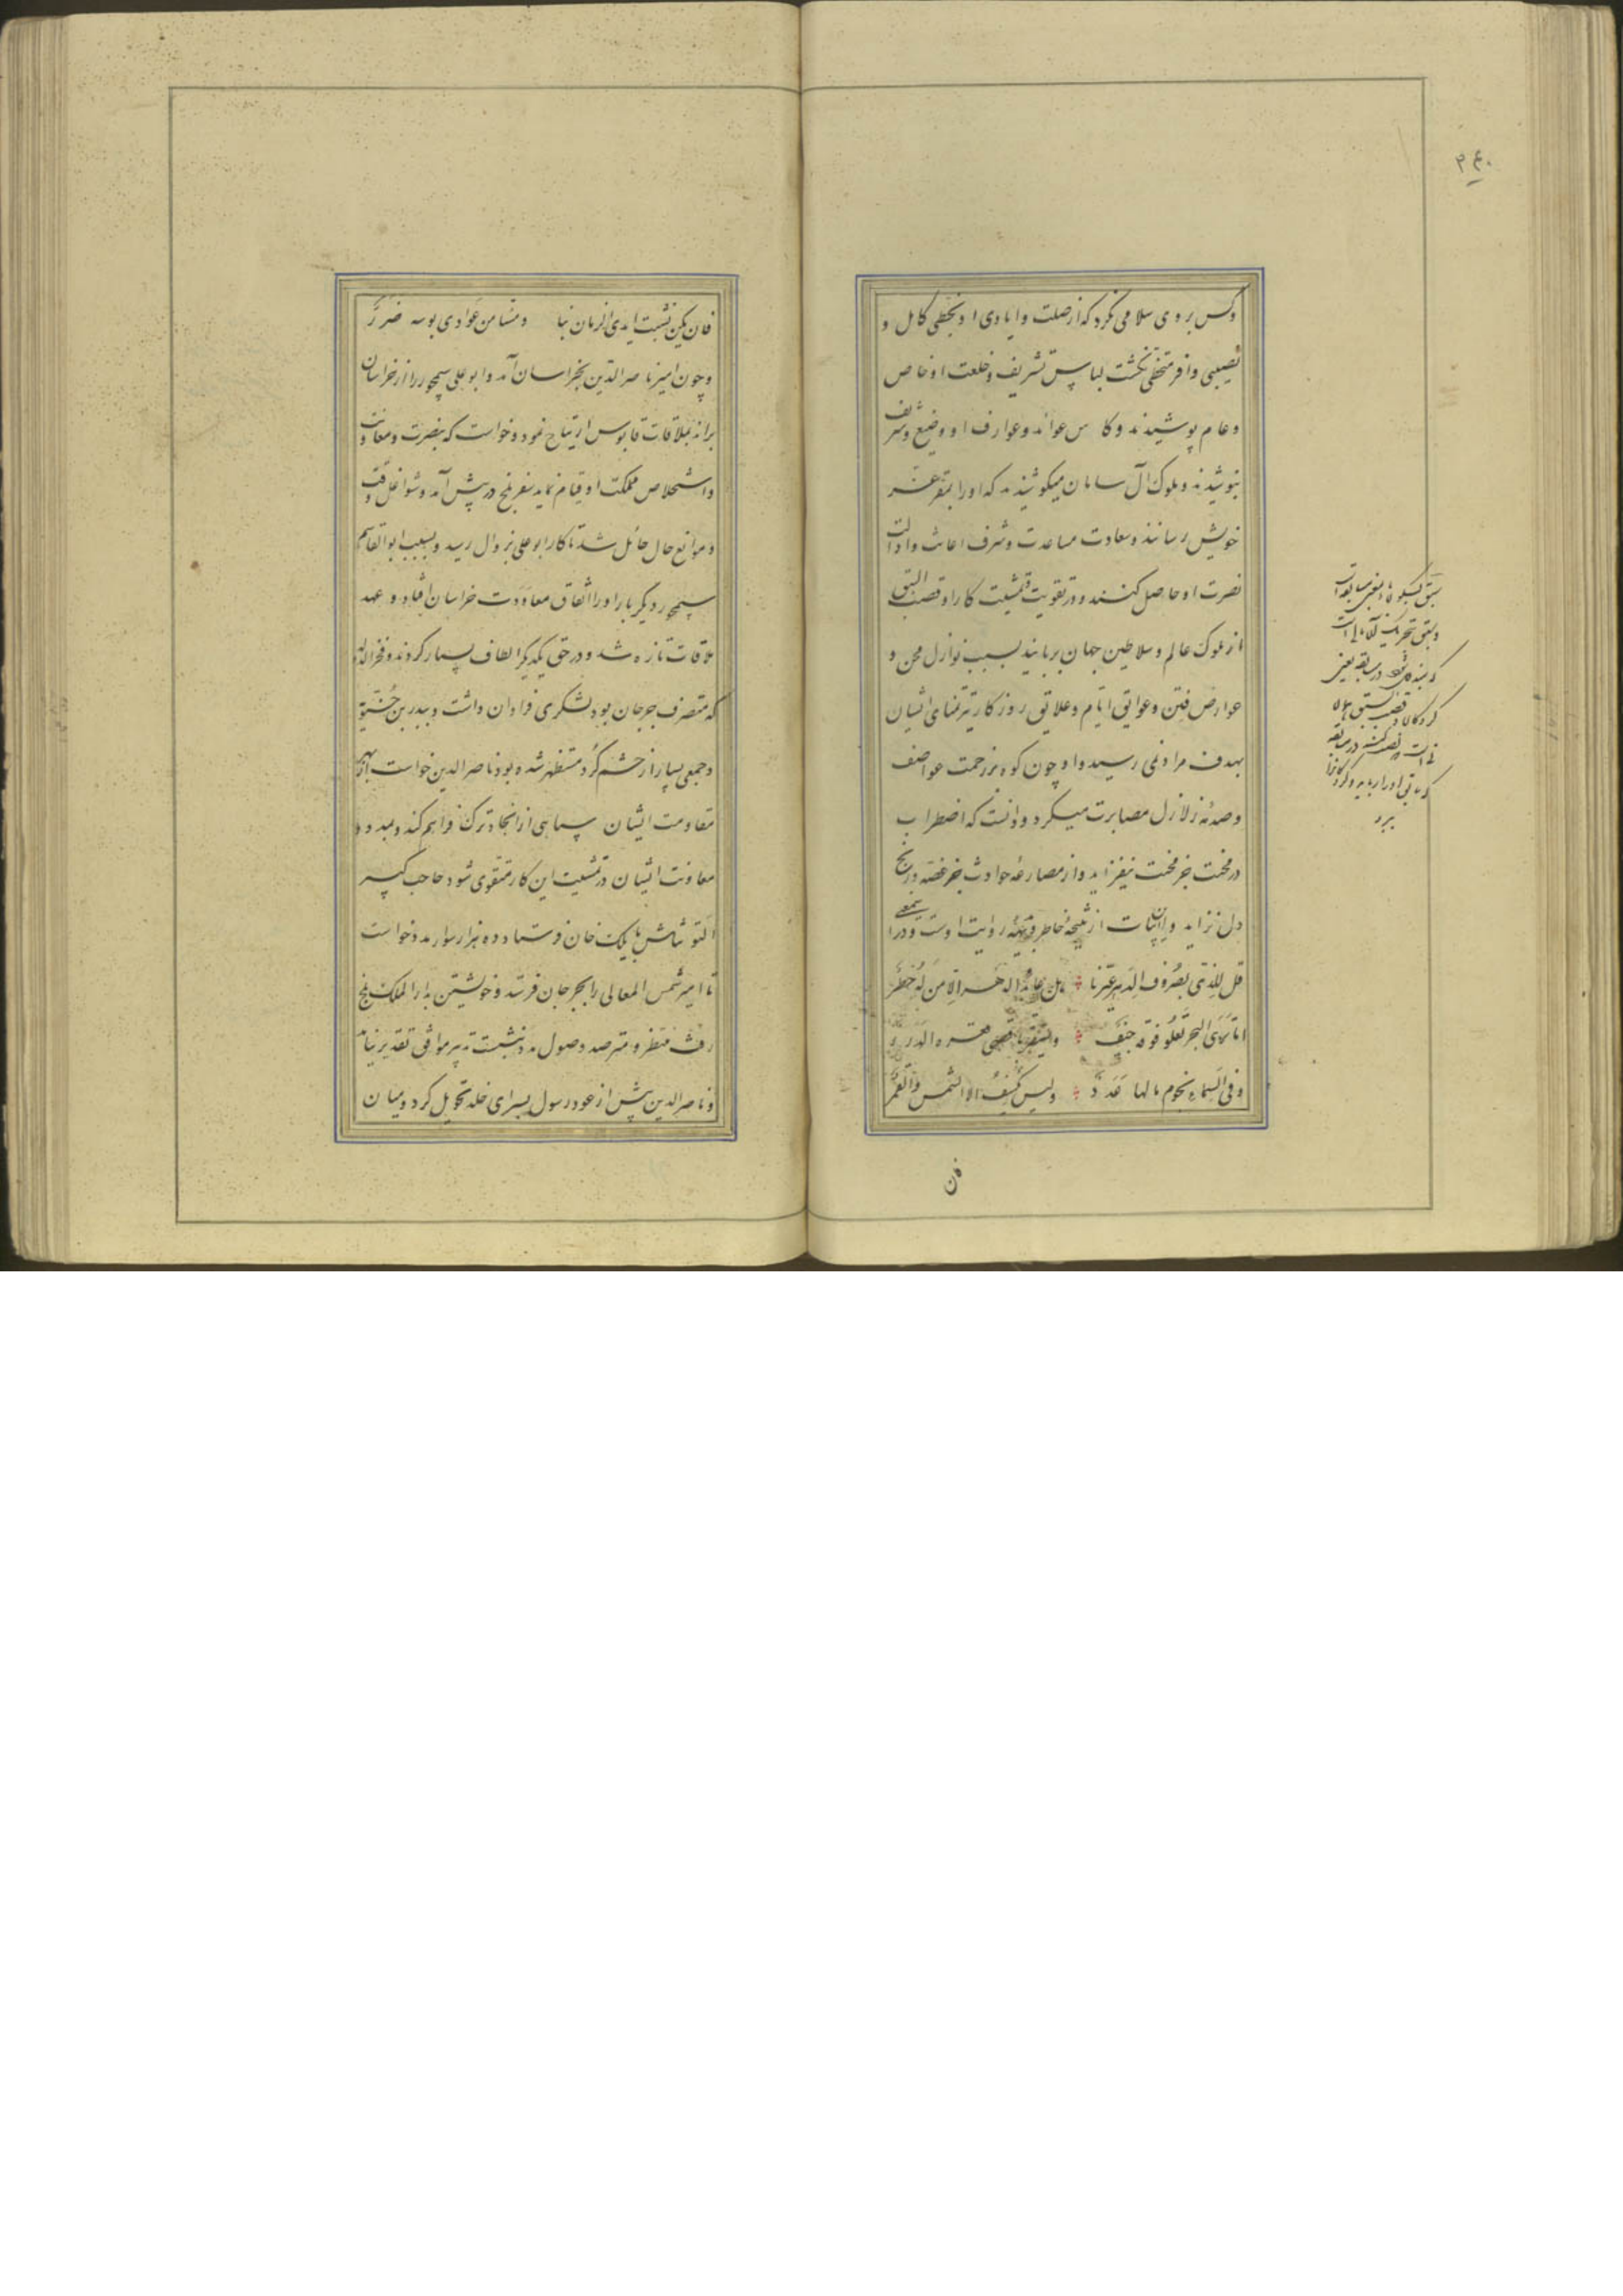 ۲۴۰
و کس بر وی سلامی نکرد که از صلت و ایادی او بحظی کامل و
نصیبی وافر متحظی نکشت لباس تشریف و خلعت او خاص
و عام پوشیدند و کاس عواید و عوارف او وضیع و شریف
بنوشیدند و ملوک آل سامان میکوشیدند که او را بمقر عز
خویش رسانند و سعادت مساعدت و شرف اغاثت و ادالت
نصرت او حاصل کنند و در تقویت و تمشیت کار او قصب السبق
از ملوک عالم و سلاطین جهان بربایند بسبب نوازل محن و
عوارض فتن و عوایق ایام و علایق روزکار تیر تمنای ایشان
بهدف مراد نمی رسید و او چون کوه بر زحمت عواصف
و صدمه زلازل مصابرت میکرد و دانست که اضطراب
در محنت جز محنت نیفزاید و از مصارعه حوادث جز غصه و رنج
دل نزاید و این ابیات از نتیجه خاطر و روایت اوست و در یتیمی
قل للذی بصروف الدهر عیرنا هل عاند الدهر الا من له خطر
اما تری البحر تعلو فوقه جیف و یستقر باقصی قعره الدرر
و فی السماء نجوم مالها عدد ولیس یکسف الا الشمس والقمر
سبق بسکون با بمعنی مسابقه است
و سبق بتحریک
در مسابقه یعنی
قصب السبق
ببرد
فان
فان یکن نشبت ایدی الزمان بنا ومسنا من عوادی بوسه ضرر
و چون امیر ناصر الدین بخراسان آمد و ابو علی سیمجور را از خراسان
براند بملاقات قابوس ارتیاح نمود و خواست که بنصرت و معاونت
و استخلاص مملکت او قیام نماید سفر بلخ در پیش آمد و شواغل وقت
و موانع حال حائل شد تا کار ابو علی بزوال رسید و بسبب ابو القاسم
سیمجور دیگر بار او را اتفاق معاودت خراسان افتاد و عهد
ملاقات تازه شد و در حق یکدیگر الطاف بسیار کردند و فخر الدوله
که متصرف جرجان بود لشکری فراوان داشت و ببدر بن حسنویه
و جمعی بسیار از حشم کرد مستظهر شده بود ناصر الدین خواست از بهر
مقاومت ایشان سپاهی از انجاد ترک فراهم کند و بمدد و
معاونت ایشان در تمشیت این کار متقوی شود حاجب کبیر
التونتاش بایلک خان فرستاد و ده هزار سوار مدد خواست
تا امیر شمس المعالی را بجرجان فرستد و خویشتن بدار الملک بلخ
رفت منتظر و مترصد وصول مدد بنشست تدبیر موافق تقدیر نیامد
و ناصر الدین پیش از عود رسول بسرای خلد تحویل کرد و میان